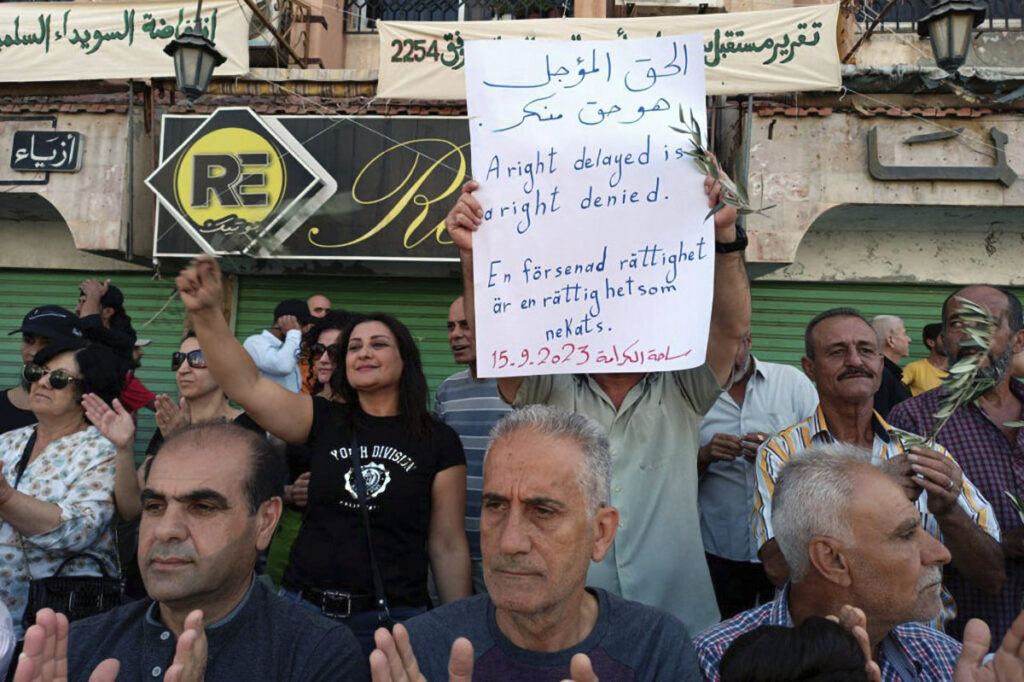 انتفاضة السويداء السلمية
تقرير مستقبل
2254
أزياء
RE
بوتيك
Re
الحق المؤجل
هو حق منكر.
A right delayed is
a right denied.
En försenad rättighet
är en rättighet som
nekats.
15.9.2023 ساحة الكرامة
YOUTH DIVISION